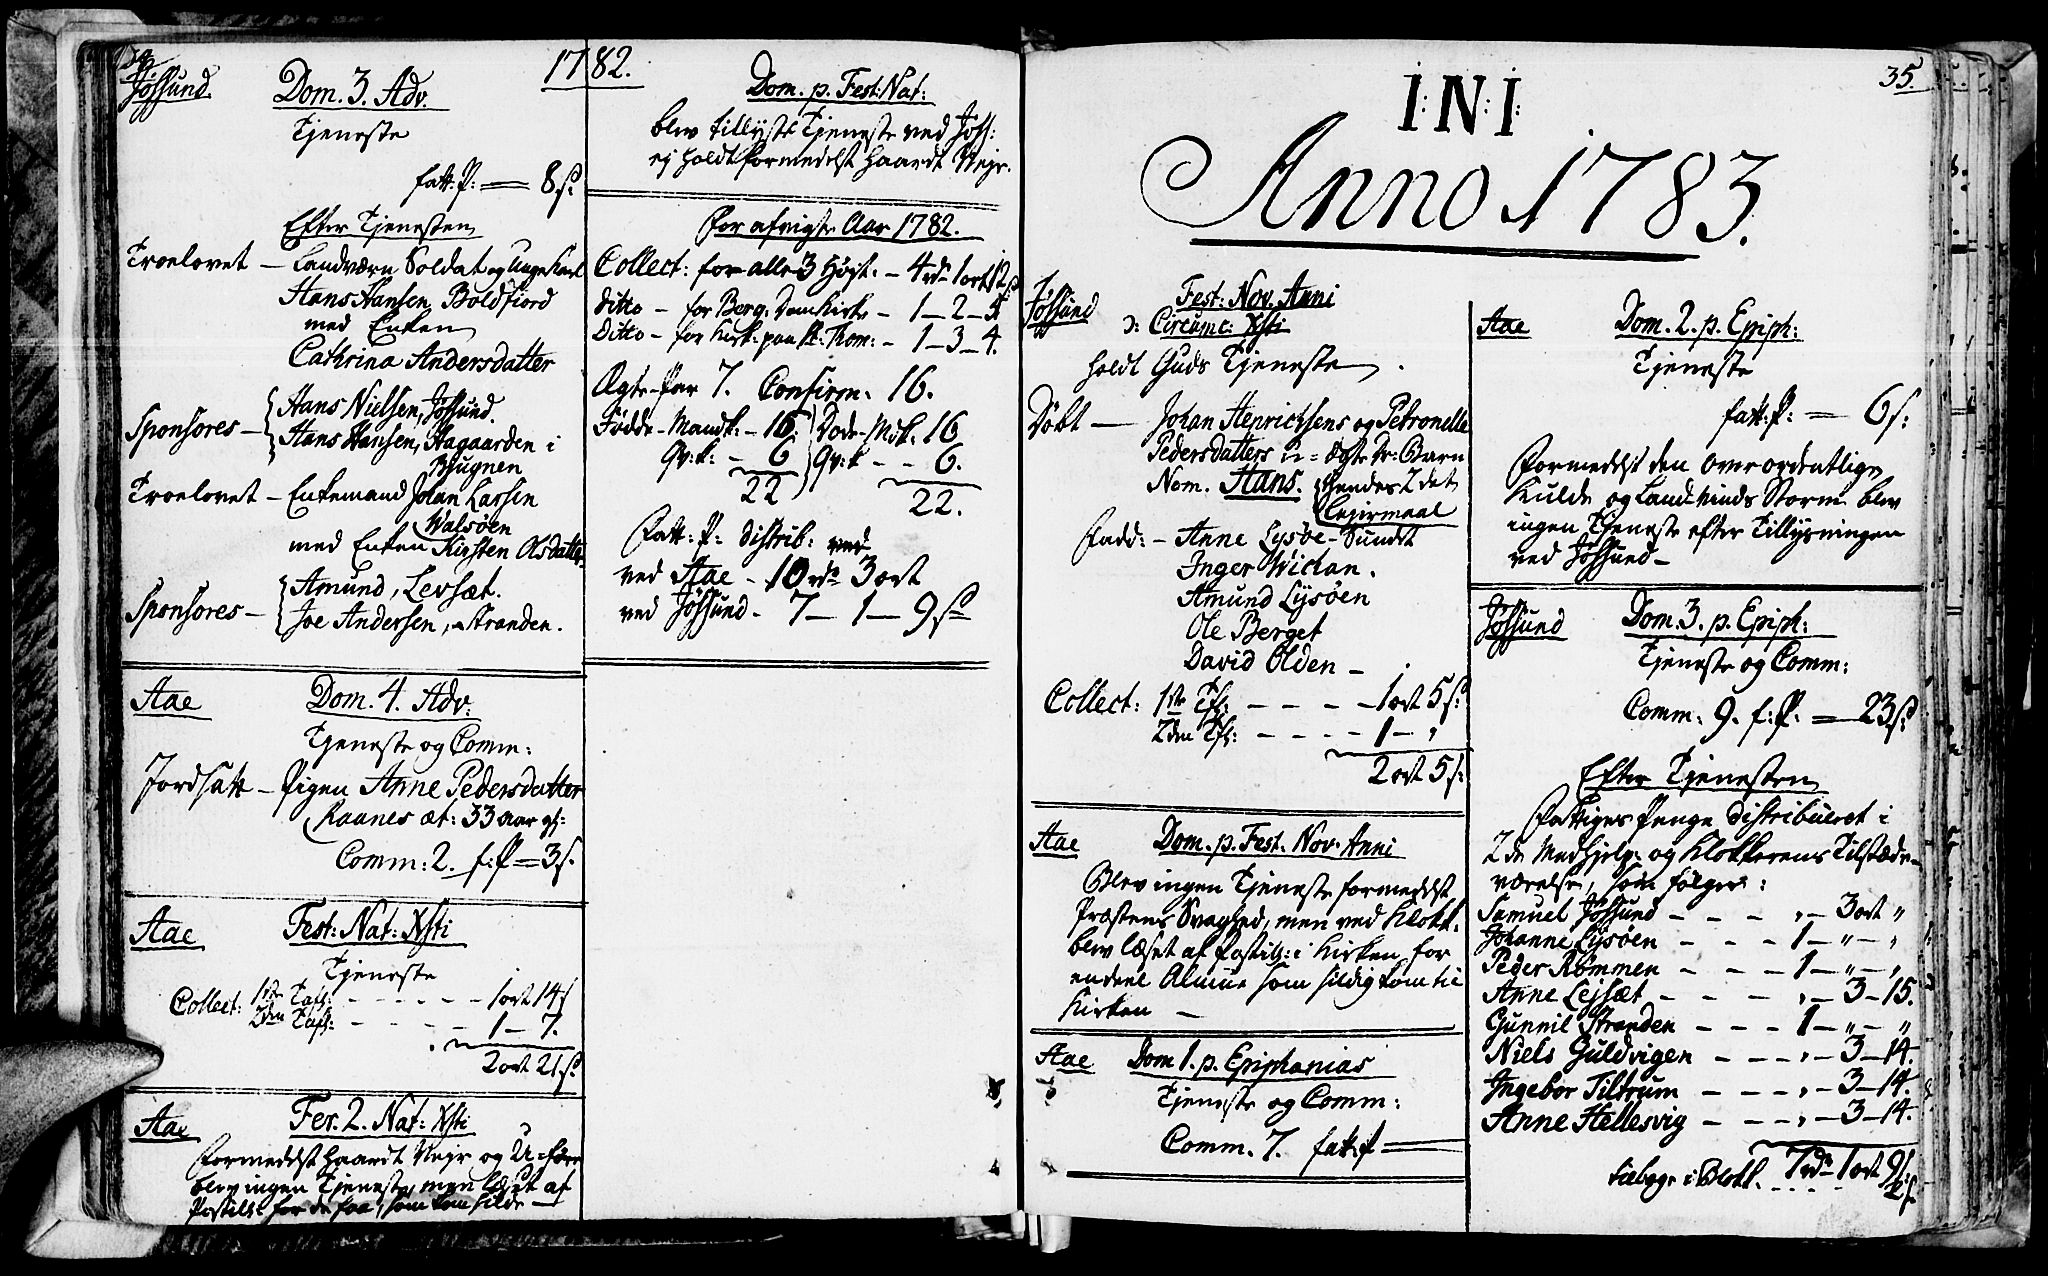 1782.
Jössund.
Dom. 3. Adv.
Tjeneste
fatt. P: = 8 s.
Efter Tjenesten
Troelovet – Landværn Soldat og Unge Karl
Hans Hansen, Boldfiord
med Enken
Cathrina Andersdatter
Sponsores – Hans Nielsen, Jössund.
Hans Hansen, Hagaarden i
Bjugnen
Troelovet – Enkemand Johan Larsen
Walsöen
med Enken Kirsten Olsdatter
Sponsores – Amund, Levsæt.
Joe Andersen, Stranden.
Aae
Dom. 4. Adv:
Tjeneste og Comm:
Jordsatt – Pigen Anne Pedersdatter
Raanes æt: 33 aar gl:
Comm: 2. f: P = 3 s.
Aae
Fest: Nat: Xsti
Tjeneste
Collect: 1ste Tafl: – – – – – 1 ort 14 s
2den Tafl: – – – – 1 – 7.
2 ort 21 s.
Aae
Fer. 2. Nat: Xsti
Formedelst haardt Vejr og U-före
blev ingen Tjeneste, men læst af
Postill: for de faa, som kom silde –
Dom. p. Fest: Nat:
blev tillyst Tjeneste ved Jöss:
ej holdt formedelst haardt Vejr.
For afvigte Aar 1782.
Collect: for alle 3 Høyt. – 4 rd 1 ort 12 s
Ditto – for Berg: Domkirke – 1 – 2 – 5
Ditto – for Kirk: paa St. Thom: – 1 – 3 – 4.
Ægte-Par 7. Confirm. 16.
Födde – Mandk. – 16. Döde – Mdk. 16
Qv: k: – 6 Qv: k – – 6.
22 22.
Fatt: P: distrib:
ved Aae – 10 rd 3 ort
ved Jössund – 7 – 1 – 9 s
35.
I: N: I:
Anno 1783.
Jössund
Fest: Nov. Anni
ɔ: Circumc: Xsti
holdt Guds Tjeneste.
Döbt – Johan Henrichsens og Petronelle
Pedersdatters u-ægte Barn
Nom. Hans. hendes 2det
Leiermaal
Fadd: – Anne Lysöe-Sundet
Inger Wichan.
Amund Lysöen
Ole Berget
David Olden –
Collect: 1ste Tfl: – – – – 1 ort 5 s:
2den Tfl: – – – – 1 – "
2 ort 5 s:
Aae
Dom. p. Fest. Nov. Anni
Blev ingen Tjeneste formedelst
Præstens Svaghed, men ved Klokk.
blev læset af Postill: i Kirken for
endeel Almue som sildig kom til
Kirken –
Aae
Dom 1. p. Epiphanias
Tjeneste og Comm:
Comm. 7. fatt: P =
Aae
Dom. 2. p. Epiph:
Tjeneste
fatt: P: = 6 s:
Formedelst den overordentlige
Kulde og Land-Vinds Storm blev
ingen Tjeneste efter Tillysningen
ved Jössund –
Jössund
Dom. 3. p. Epiph:
Tjeneste og Comm:
Comm: 9. f: P: = 23 s:
Efter Tjenesten
Fattiges Penge distribueret i
2de Medhjelp: og Klokkerens Tilstæde-
værelse, som fölger:
Samuel Jössund – – – " – 3 ort "
Johanne Lysöen – – – 1 – " – "
Peder Römmen – – – 1 – " – "
Anne Lejsæt – – – " – 3 – 15.
Gunnil Stranden – – – 1 – " – "
Niels Guldvigen – – – " – 3 – 14.
Ingebor Tiltrum – – – " – 3 – 14.
Anne Hellesvig – – – " – 3 – 14.
7 rd 1 ort 9 s:
tilbage i Blokk. . . . . . 2 s